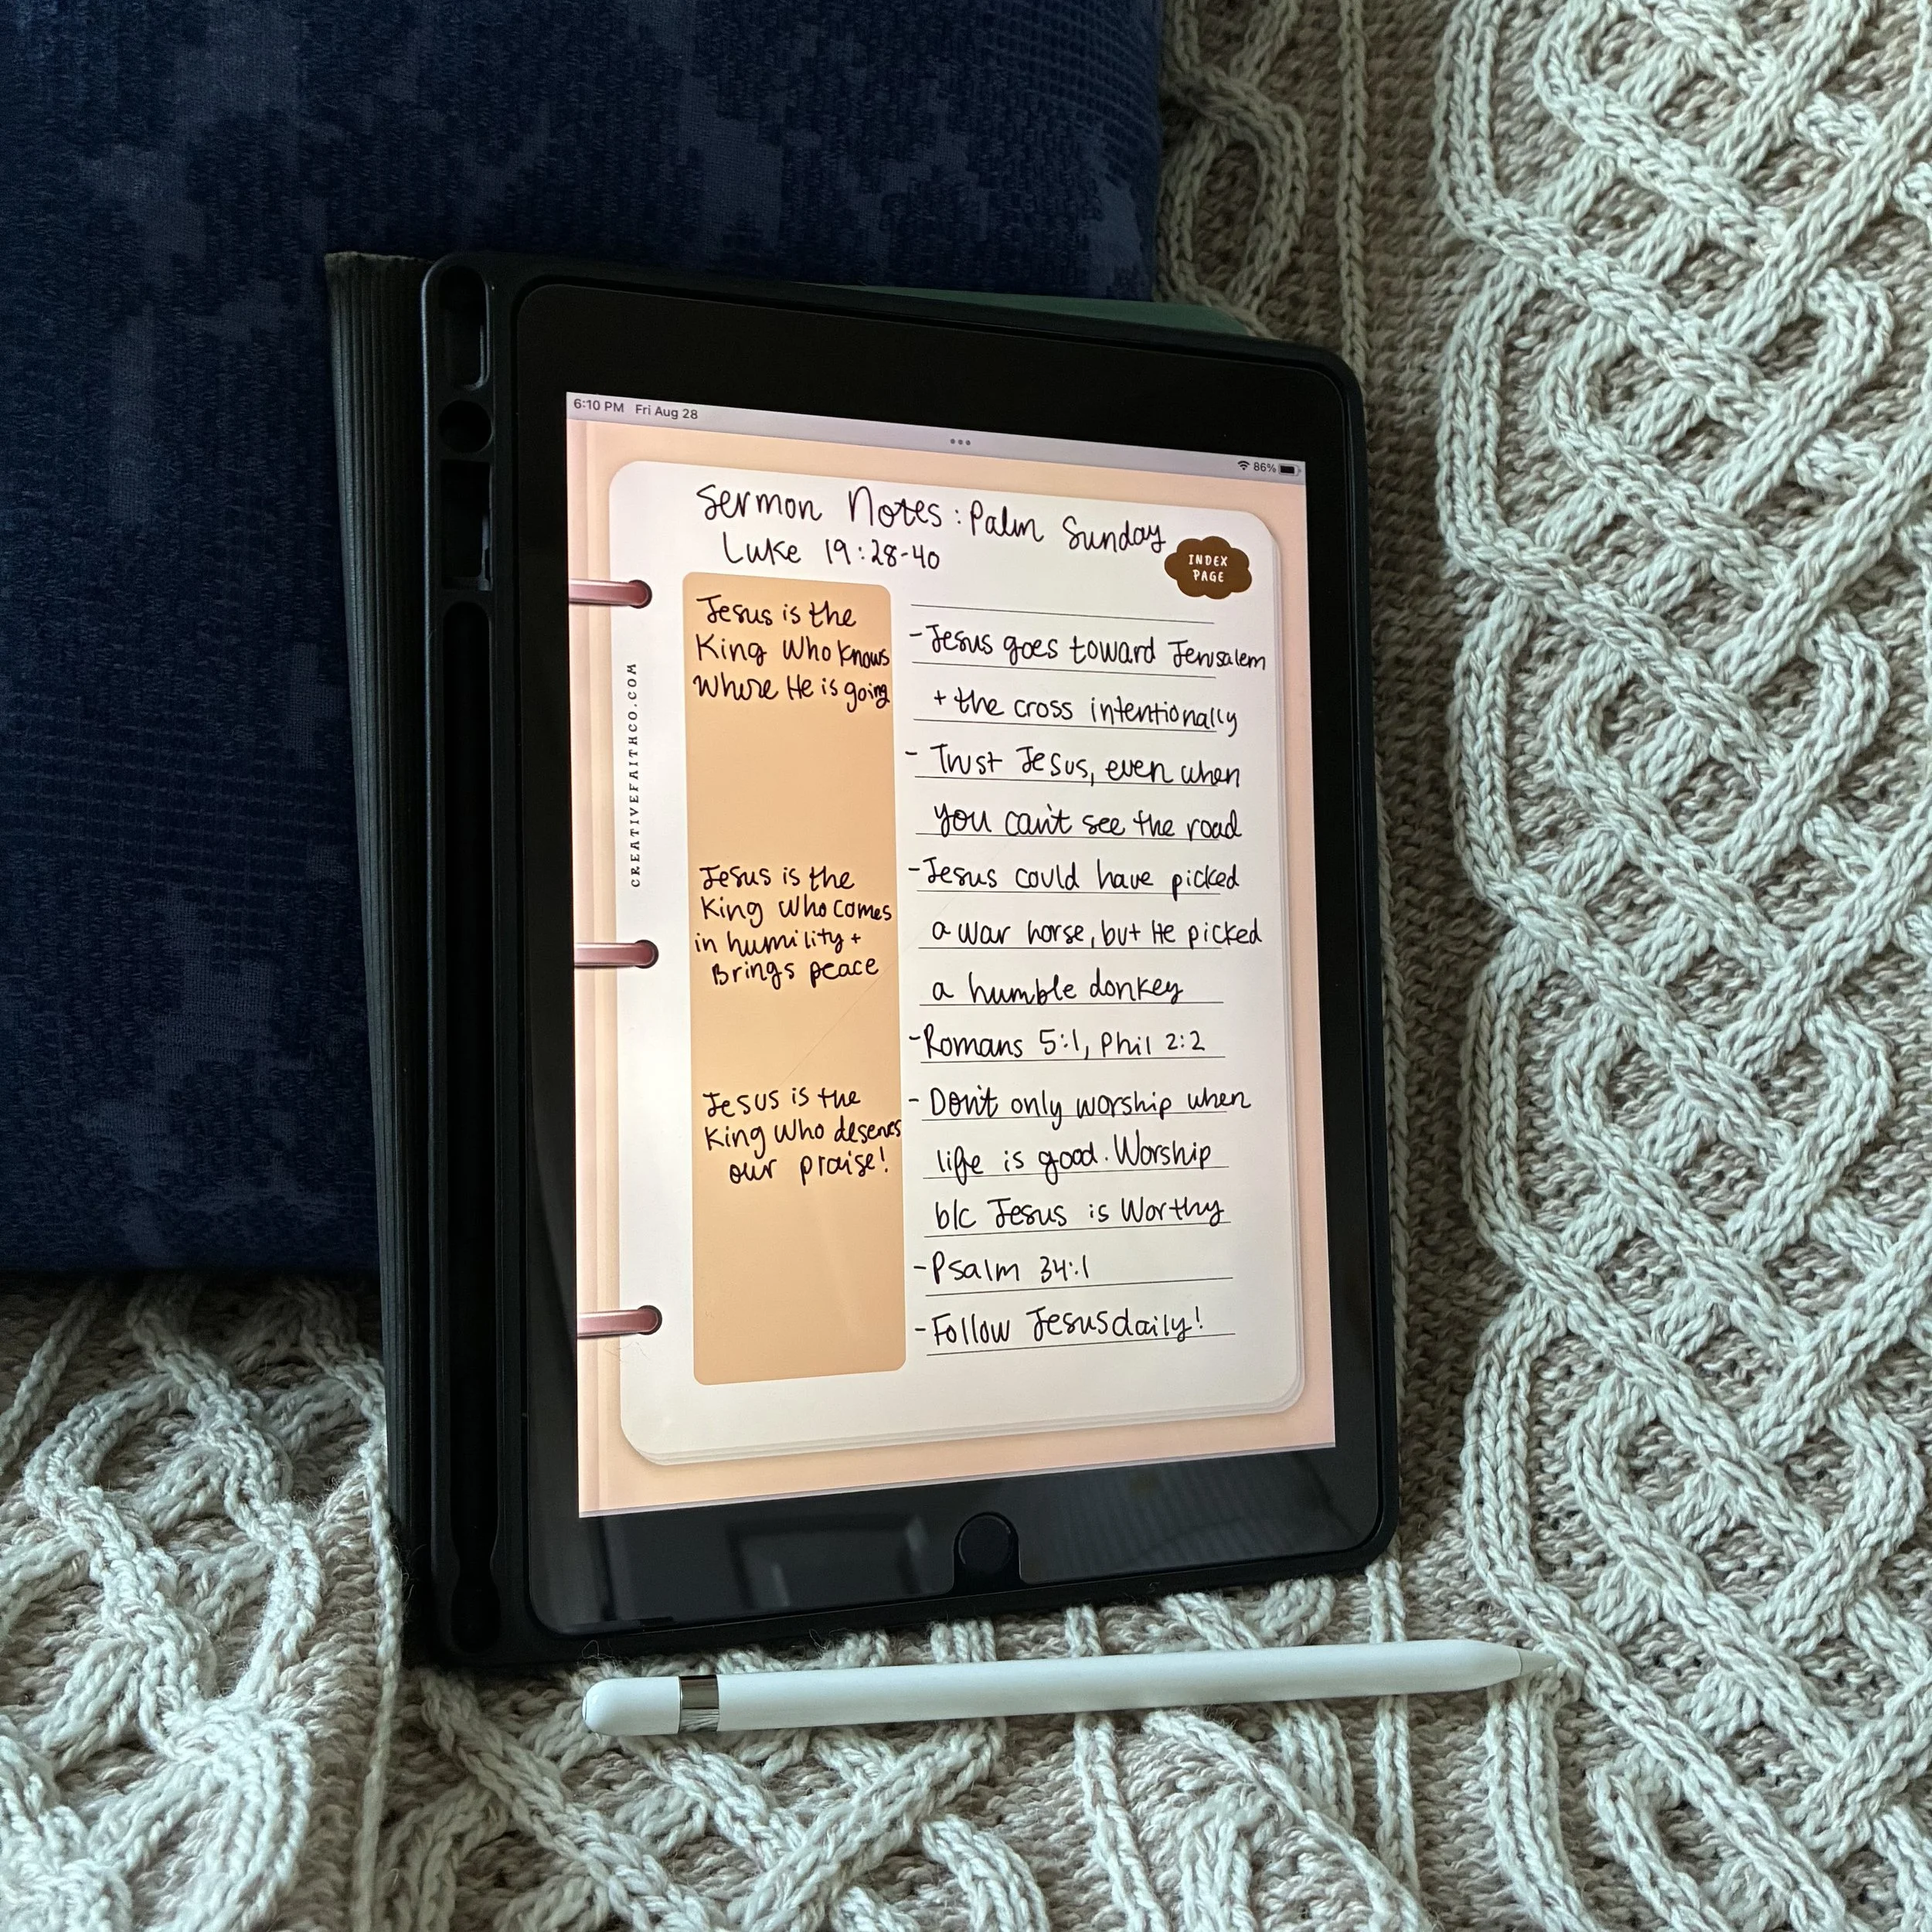 6:10 PM Fri Aug 28
86%
Sermon Notes: Palm Sunday
Luke 19:28-40
INDEX
PAGE
CREATIVEFAITHCO.COM
Jesus is the
King Who knows
Where He is going
Jesus is the
King who comes
in humility +
Brings peace
Jesus is the
King Who deserves
our praise!
-Jesus goes toward Jerusalem
+ the cross intentionally
- Trust Jesus, even when
you can't see the road
-Jesus could have picked
a war horse, but He picked
a humble donkey
-Romans 5:1, Phil 2:2
- Don't only worship when
life is good. Worship
b/c Jesus is Worthy
-Psalm 34:1
-Follow Jesus daily!